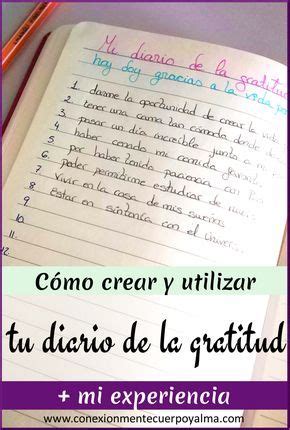 Mi diario de la gratitud
hoy doy gracias a la vida por
1. darme la oportunidad de crear la vida
2. tener una cama tan cómoda donde
3. pasar un día increíble junto a mi
4. haber comido mi comida
5. por haber tenido paciencia con
6. poder permitirme estudiar de
7. vivir en la casa de mis sueños
8. estar en sintonía con el
9.
10.
11.
12.
Cómo crear y utilizar
tu diario de la gratitud
+ mi experiencia
www.conexionmentecuerpoyalma.com